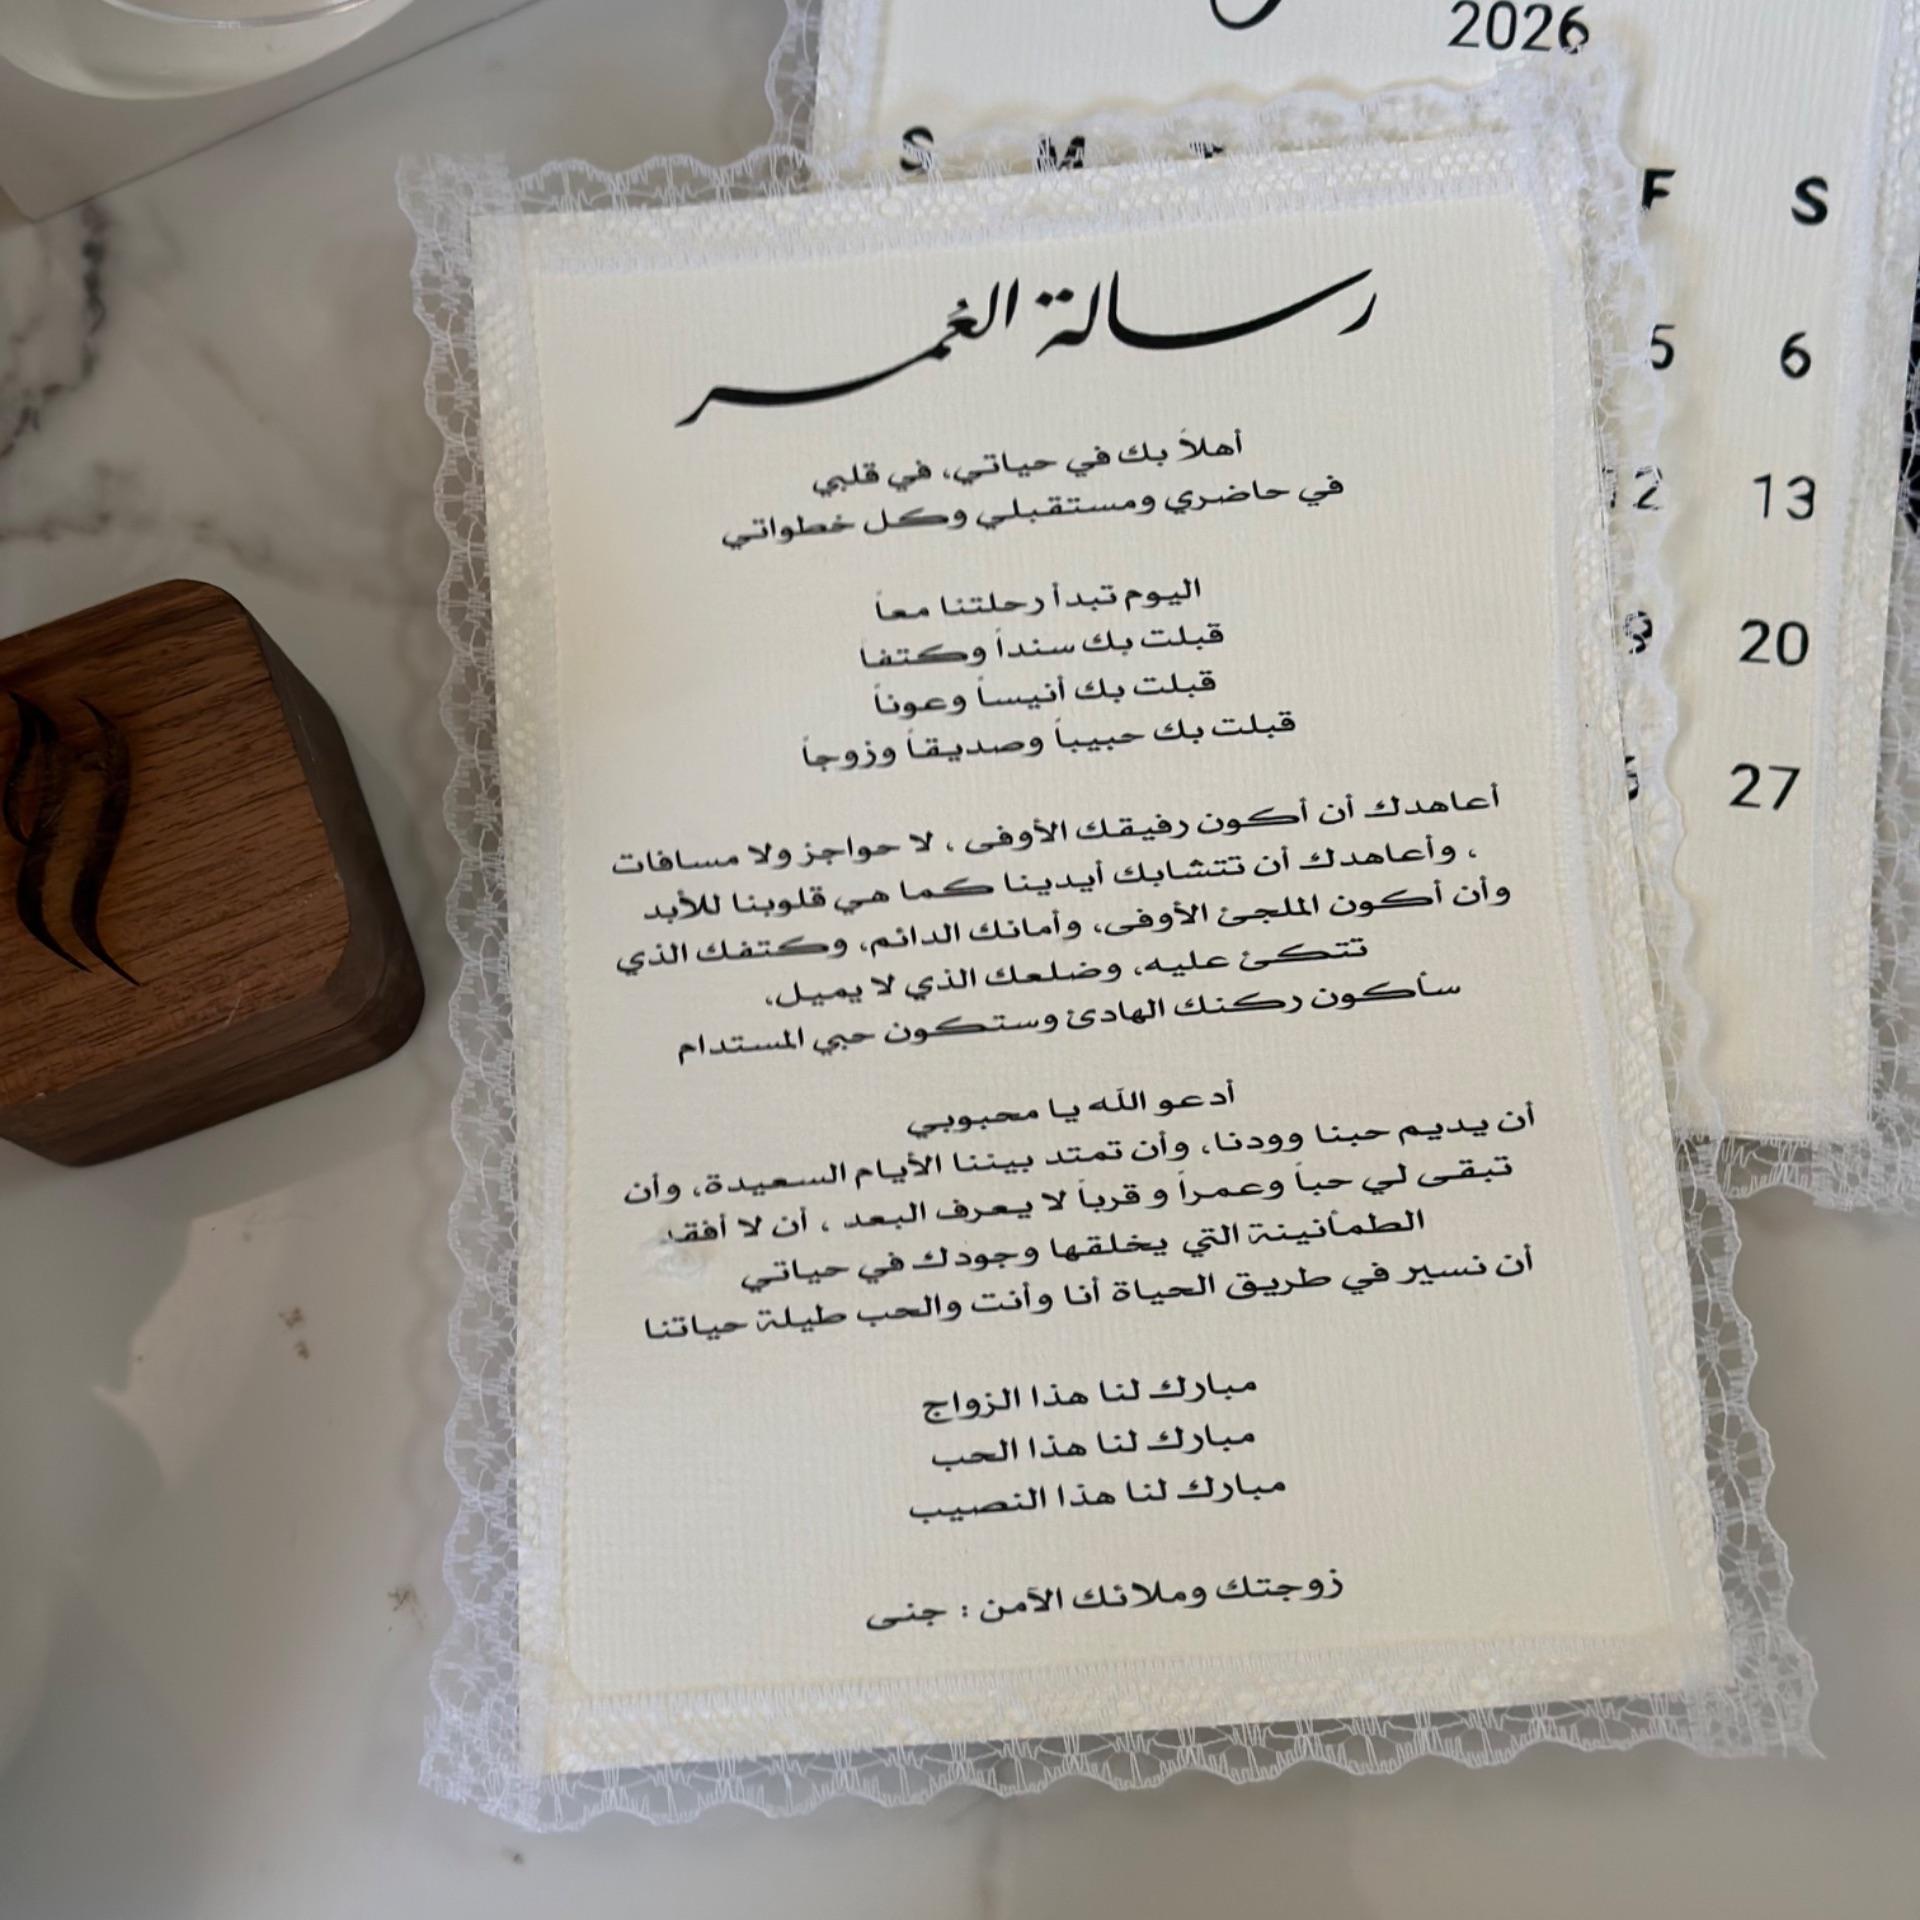 2026
S M T F S
5 6
12 13
20
27
رسالة العُمر
أهلاً بك في حياتي، في قلبي
في حاضري ومستقبلي وكل خطواتي
اليوم تبدأ رحلتنا معاً
قبلت بك سنداً وكتفاً
قبلت بك أنيساً وعوناً
قبلت بك حبيباً وصديقاً وزوجاً
أعاهدك أن أكون رفيقك الأوفى ، لا حواجز ولا مسافات
، وأعاهدك أن تتشابك أيدينا كما هي قلوبنا للأبد
وأن أكون الملجئ الأوفى، وأمانك الدائم، وكتفك الذي
تتكئ عليه، وضلعك الذي لا يميل،
سأكون ركنك الهادئ وستكون حبي المستدام
أدعو الله يا محبوبي
أن يديم حبنا وودنا، وأن تمتد بيننا الأيام السعيدة، وأن
تبقى لي حباً وعمراً و قرباً لا يعرف البعد ، أن لا أفقد
الطمأنينة التي يخلقها وجودك في حياتي
أن نسير في طريق الحياة أنا وأنت والحب طيلة حياتنا
مبارك لنا هذا الزواج
مبارك لنا هذا الحب
مبارك لنا هذا النصيب
زوجتك وملائك الآمن : جنى